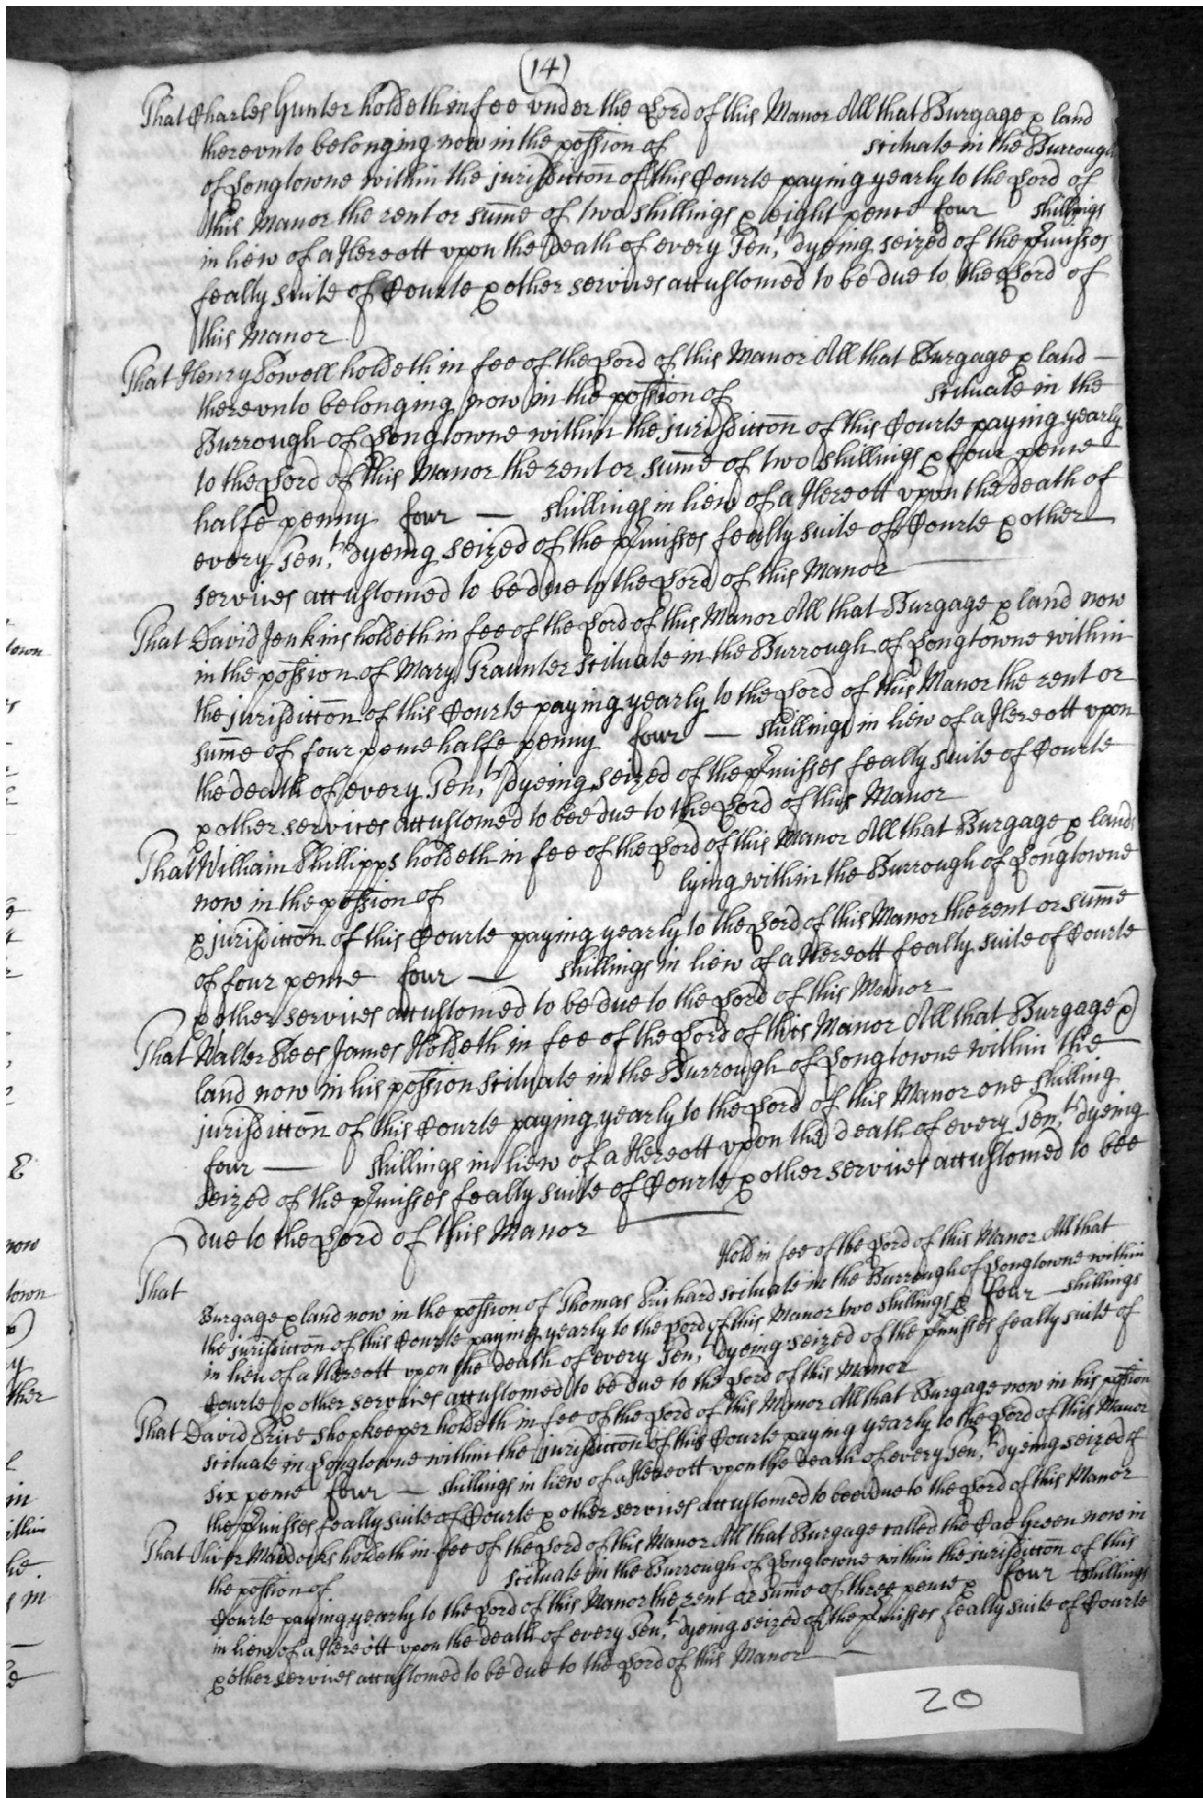 (14)
That Charles Gunter holdeth in fee vnder the Lord of this Manor All that Burgage & land
therevnto belonging now in the possion of scituate in the Burrough
of Longtowne within the jurisdiccon of this Courte paying yearly to the Lord of
this Manor the rent or sume of two shillings & eight pence four shillings
in liew of a Hereott vpon the death of every Tent dyeing seized of the pmisses
fealty suite of Courte & other services accustomed to be due to the Lord of
this Manor
That Henry Powell holdeth in fee of the Lord of this Manor All that Burgage & land —
therevnto belonging now in the possion of scituate in the
Burrough of Longtowne within the jurisdiccon of this Courte paying yearly
to the Lord of this Manor the rent or sume of two shillings & four pence
halfe penny four — shillings in liew of a Hereott vpon the death of
every Tent dyeing seized of the pmisses fealty suite of Courte & other
services accustomed to be due to the Lord of this Manor
That David Jenkins holdeth in fee of the Lord of this Manor All that Burgage & land now
in the possion of Mary Graunter scituate in the Burrough of Longtowne within
the jurisdiccon of this Courte paying yearly to the Lord of this Manor the rent or
sume of four pence halfe penny four — shillings in liew of a Hereott vpon
the death of every Tent dyeing seized of the pmisses fealty suite of Courte
& other services accustomed to bee due to the Lord of this Manor
That William Phillipps holdeth in fee of the Lord of this Manor All that Burgage & lands
now in the possion of lying within the Burrough of Longtowne
& jurisdiccon of this Courte paying yearly to the Lord of this Manor the rent or sume
of four pence four — shillings in liew of a Hereott fealty suite of Courte
& other services accustomed to be due to the Lord of this Manor
That Walter Rees James Holdeth in fee of the Lord of this Manor All that Burgage &
land now in his possion scituate in the Burrough of Longtowne within the
jurisdiccon of this Courte paying yearly to the Lord of this Manor one shilling
four — shillings in liew of a Hereott vpon the death of every Tent dyeing
seized of the pmisses fealty suite of Courte & other services accustomed to bee
due to the Lord of this Manor
That Hold in fee of the Lord of this Manor All that
Burgage & land now in the possion of Thomas Prichard scituate in the Burrough of Longtowne within
the jurisdiccon of this Courte paying yearly to the Lord of this Manor two shillings & four — shillings
in liew of a Hereott vpon the death of every Tent dyeing seized of the pmisses fealty suite of
Courte & other services accustomed to be due to the Lord of this Manor
That David Price shopkeeper holdeth in fee of the Lord of this Manor All that Burgage now in his possion
scituate in Longtowne within the jurisdiccon of this Courte paying yearly to the Lord of this Manor
six pence four — shillings in liew of a Hereott vpon the death of every Tent dyeing seized of
the pmisses fealty suite of Courte & other services accustomed to bee due to the Lord of this Manor
That Oliver Maddocks holdeth in fee of the Lord of this Manor All that Burgage called the Cae Green now in
the possion of scituate in the Burrough of Longtowne within the jurisdiccon of this
Courte paying yearly to the Lord of this Manor the rent or sume of three pence & four shillings
in liew of a Hereott vpon the death of every Tent dyeing seized of the pmisses fealty suite of Courte
& other services accustomed to be due to the Lord of this Manor —
20